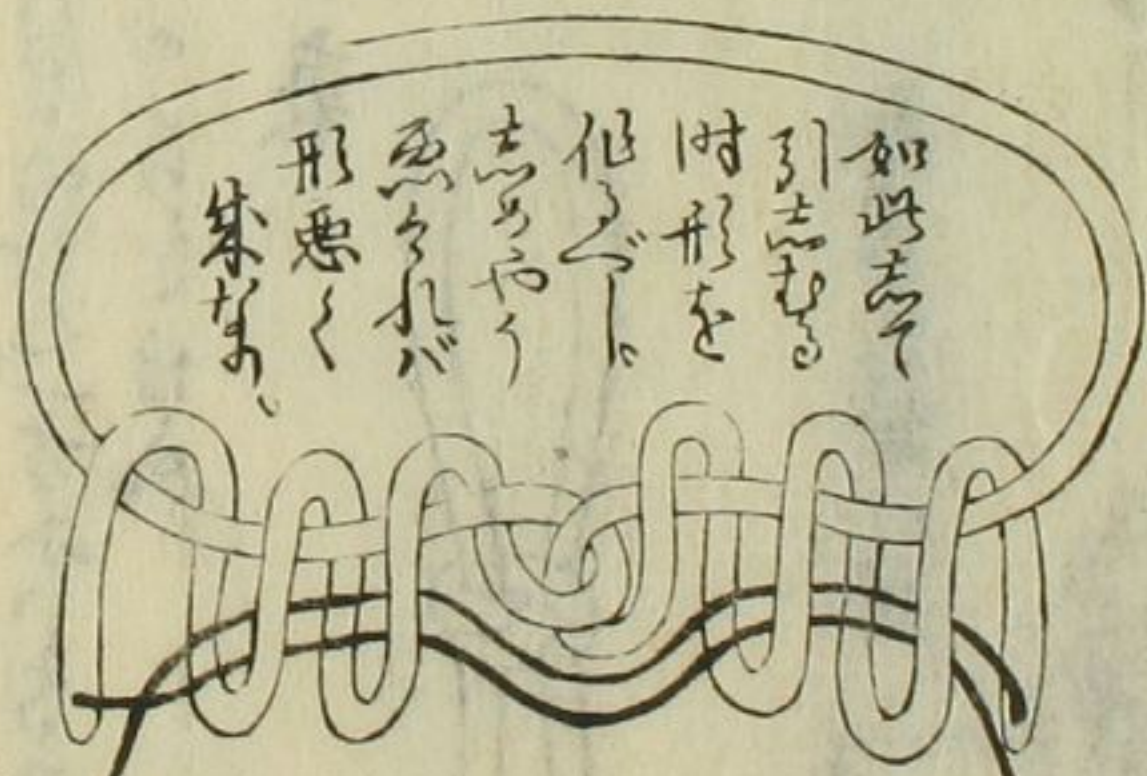 如此志て
引志むる
時形を
作るべし
志めやう
悪ければ
形悪く
成なり